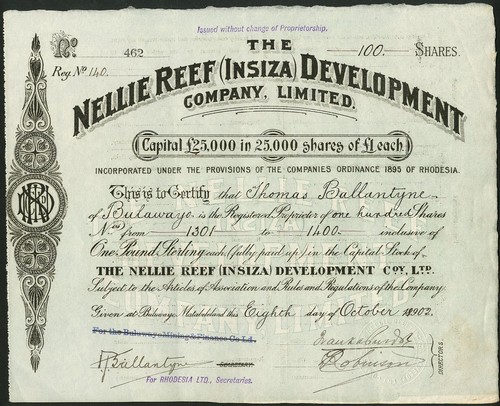 Issued without change of Proprietorship.
No. 462
100 SHARES.
Reg. No 140.
THE
NELLIE REEF (INSIZA) DEVELOPMENT
COMPANY, LIMITED.
Capital £25,000 in 25,000 shares of £1 each
INCORPORATED UNDER THE PROVISIONS OF THE COMPANIES ORDINANCE 1895 OF RHODESIA.
This is to Certify that Thomas Ballantyne
of Bulawayo is the Registered Proprietor of one hundred Shares
Nos from 1301 to 1400 inclusive of
One Pound Sterling each (fully paid up) in the Capital Stock of
THE NELLIE REEF (INSIZA) DEVELOPMENT COY, LTD.
Subject to the Articles of Association and Rules and Regulations of the Company.
Given at Bulawayo, Matabeleland this Eighth day of October 1902.
For the Bulawayo Mining & Finance Co Ld.
Ballantyne
SECRETARY.
For RHODESIA LTD., Secretaries.
Robinson
DIRECTORS.